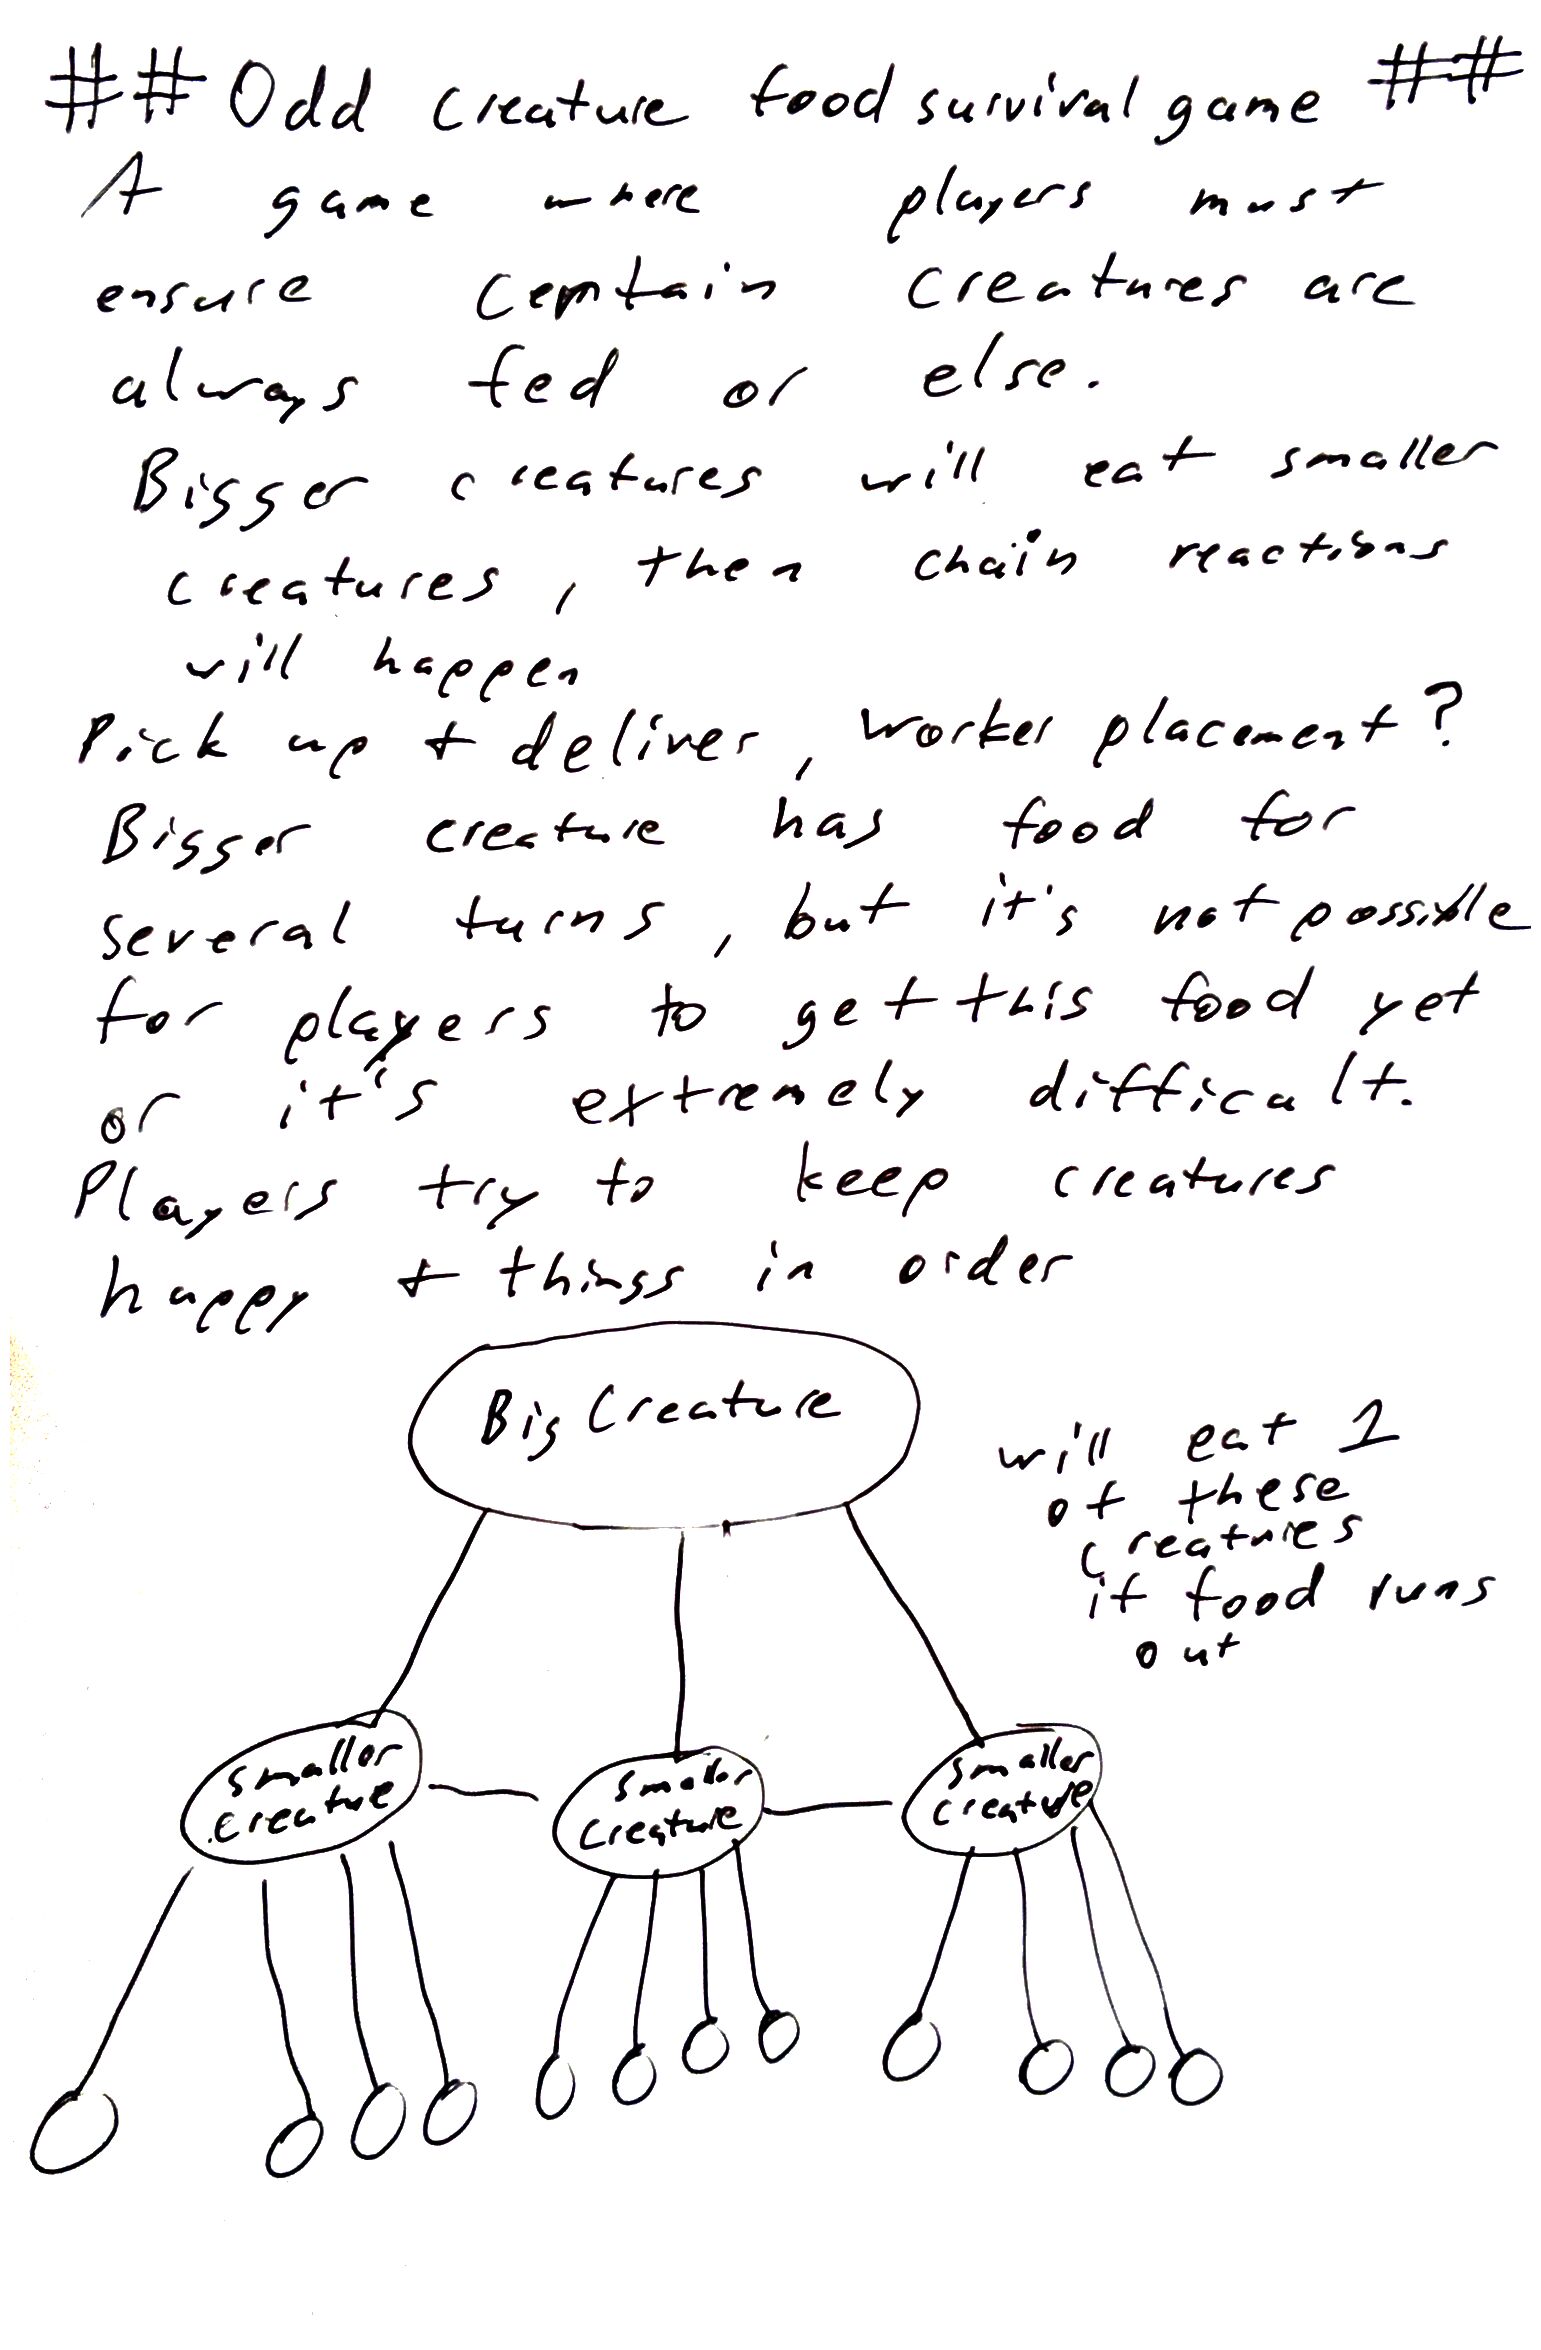 ## Odd creature food survival game ##
A game where players must
ensure certain creatures are
always fed or else.
Bigger creatures will eat smaller
creatures, then chain reactions
will happen
Pick up + deliver, worker placement?
Bigger creature has food for
several turns, but it's not possible
for players to get this food yet
or it's extremely difficult.
Players try to keep creatures
happy + things in order
Big Creature
will eat 1
of these
creatures
if food runs
out
smaller
creature
smaller
creature
smaller
creature